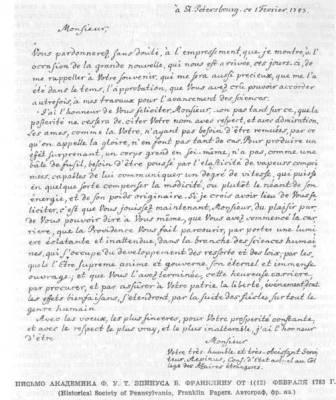 à St. Petersbourg. ce 1 Fevrier, 1783.
Monsieur,
Vous pardonnerez, sans doute, à l'empressement, que je montre, à l'
occasion de la grande nouvelle, qui nous est arrivée, ces jours-ci, de
me rappeller à Votre souvenir, qui me sera aussi précieux, que me l'a
été dans le tems, l'approbation, que Vous avez cru pouvoir accorder
autrefois, à nos travaux pour l'avancement des sciences.
J'ai l'honneur de Vous féliciter, Monsieur, non pas tant sur ce, que la
posterité ne cessera de citer Votre nom avec respect, et avec admiration.
Les ames, comme la Votre, n'ayant pas besoin d'être remuées, par ce
qu'on appelle la gloire, n'en font pas tant de cas. Pour produire un
effet surprenant, un corps grand en soi-même, n'a pas, comme une
bâle de fusil, besoin d'être poussé par l'elasticité de vapeurs compri-
mées, capables de lui communiquer un degré de vitesse, qui puis-
se en quelque sorte compenser la modicité, ou plutôt le néant de son
énergie, et de son poids originaire. Si je crois avoir lieu de Vous fe-
liciter, c'est que Vous jouissez maintenant, Monsieur, du plaisir par
de Vous pouvoir dire à Vous même, que Vous avez commencé la car-
rière, que la Providence Vous fait parcourir, par porter une lumi-
ere éclatante et inattendue, dans la branche des sciences humai-
nes, qui s'occupe du developpement des ressorts et des loix, par les-
quels l'Etre suprême anime et gouverne, son éternel et immense
ouvrage; et que Vous l'avez terminée, cette heureuse carriere,
par procurer, et par assurer à Votre patrie la liberté, évenement dont
les effets bienfaisans, s'étendront, par la suite des siècles sur tout le
genre humain.
Avec les voeux, les plus sinceres, pour Votre prosperité constante,
et avec le respect le plus vray, et le plus inalterable, j'ai l'honneur
d'être
Monsieur
Votre très humble et très obéissant Servi-
teur, Aepinus, Cons. d'Etat act: et au Col-
lège des Affaires étrangeres.
ПИСЬМО АКАДЕМИКА Ф. У. Т. ЭПИНУСА Б. ФРАНКЛИНУ ОТ 1(12) ФЕВРАЛЯ 1783 Г.
(Historical Society of Pennsylvania, Franklin Papers. Автограф, фр. яз.)